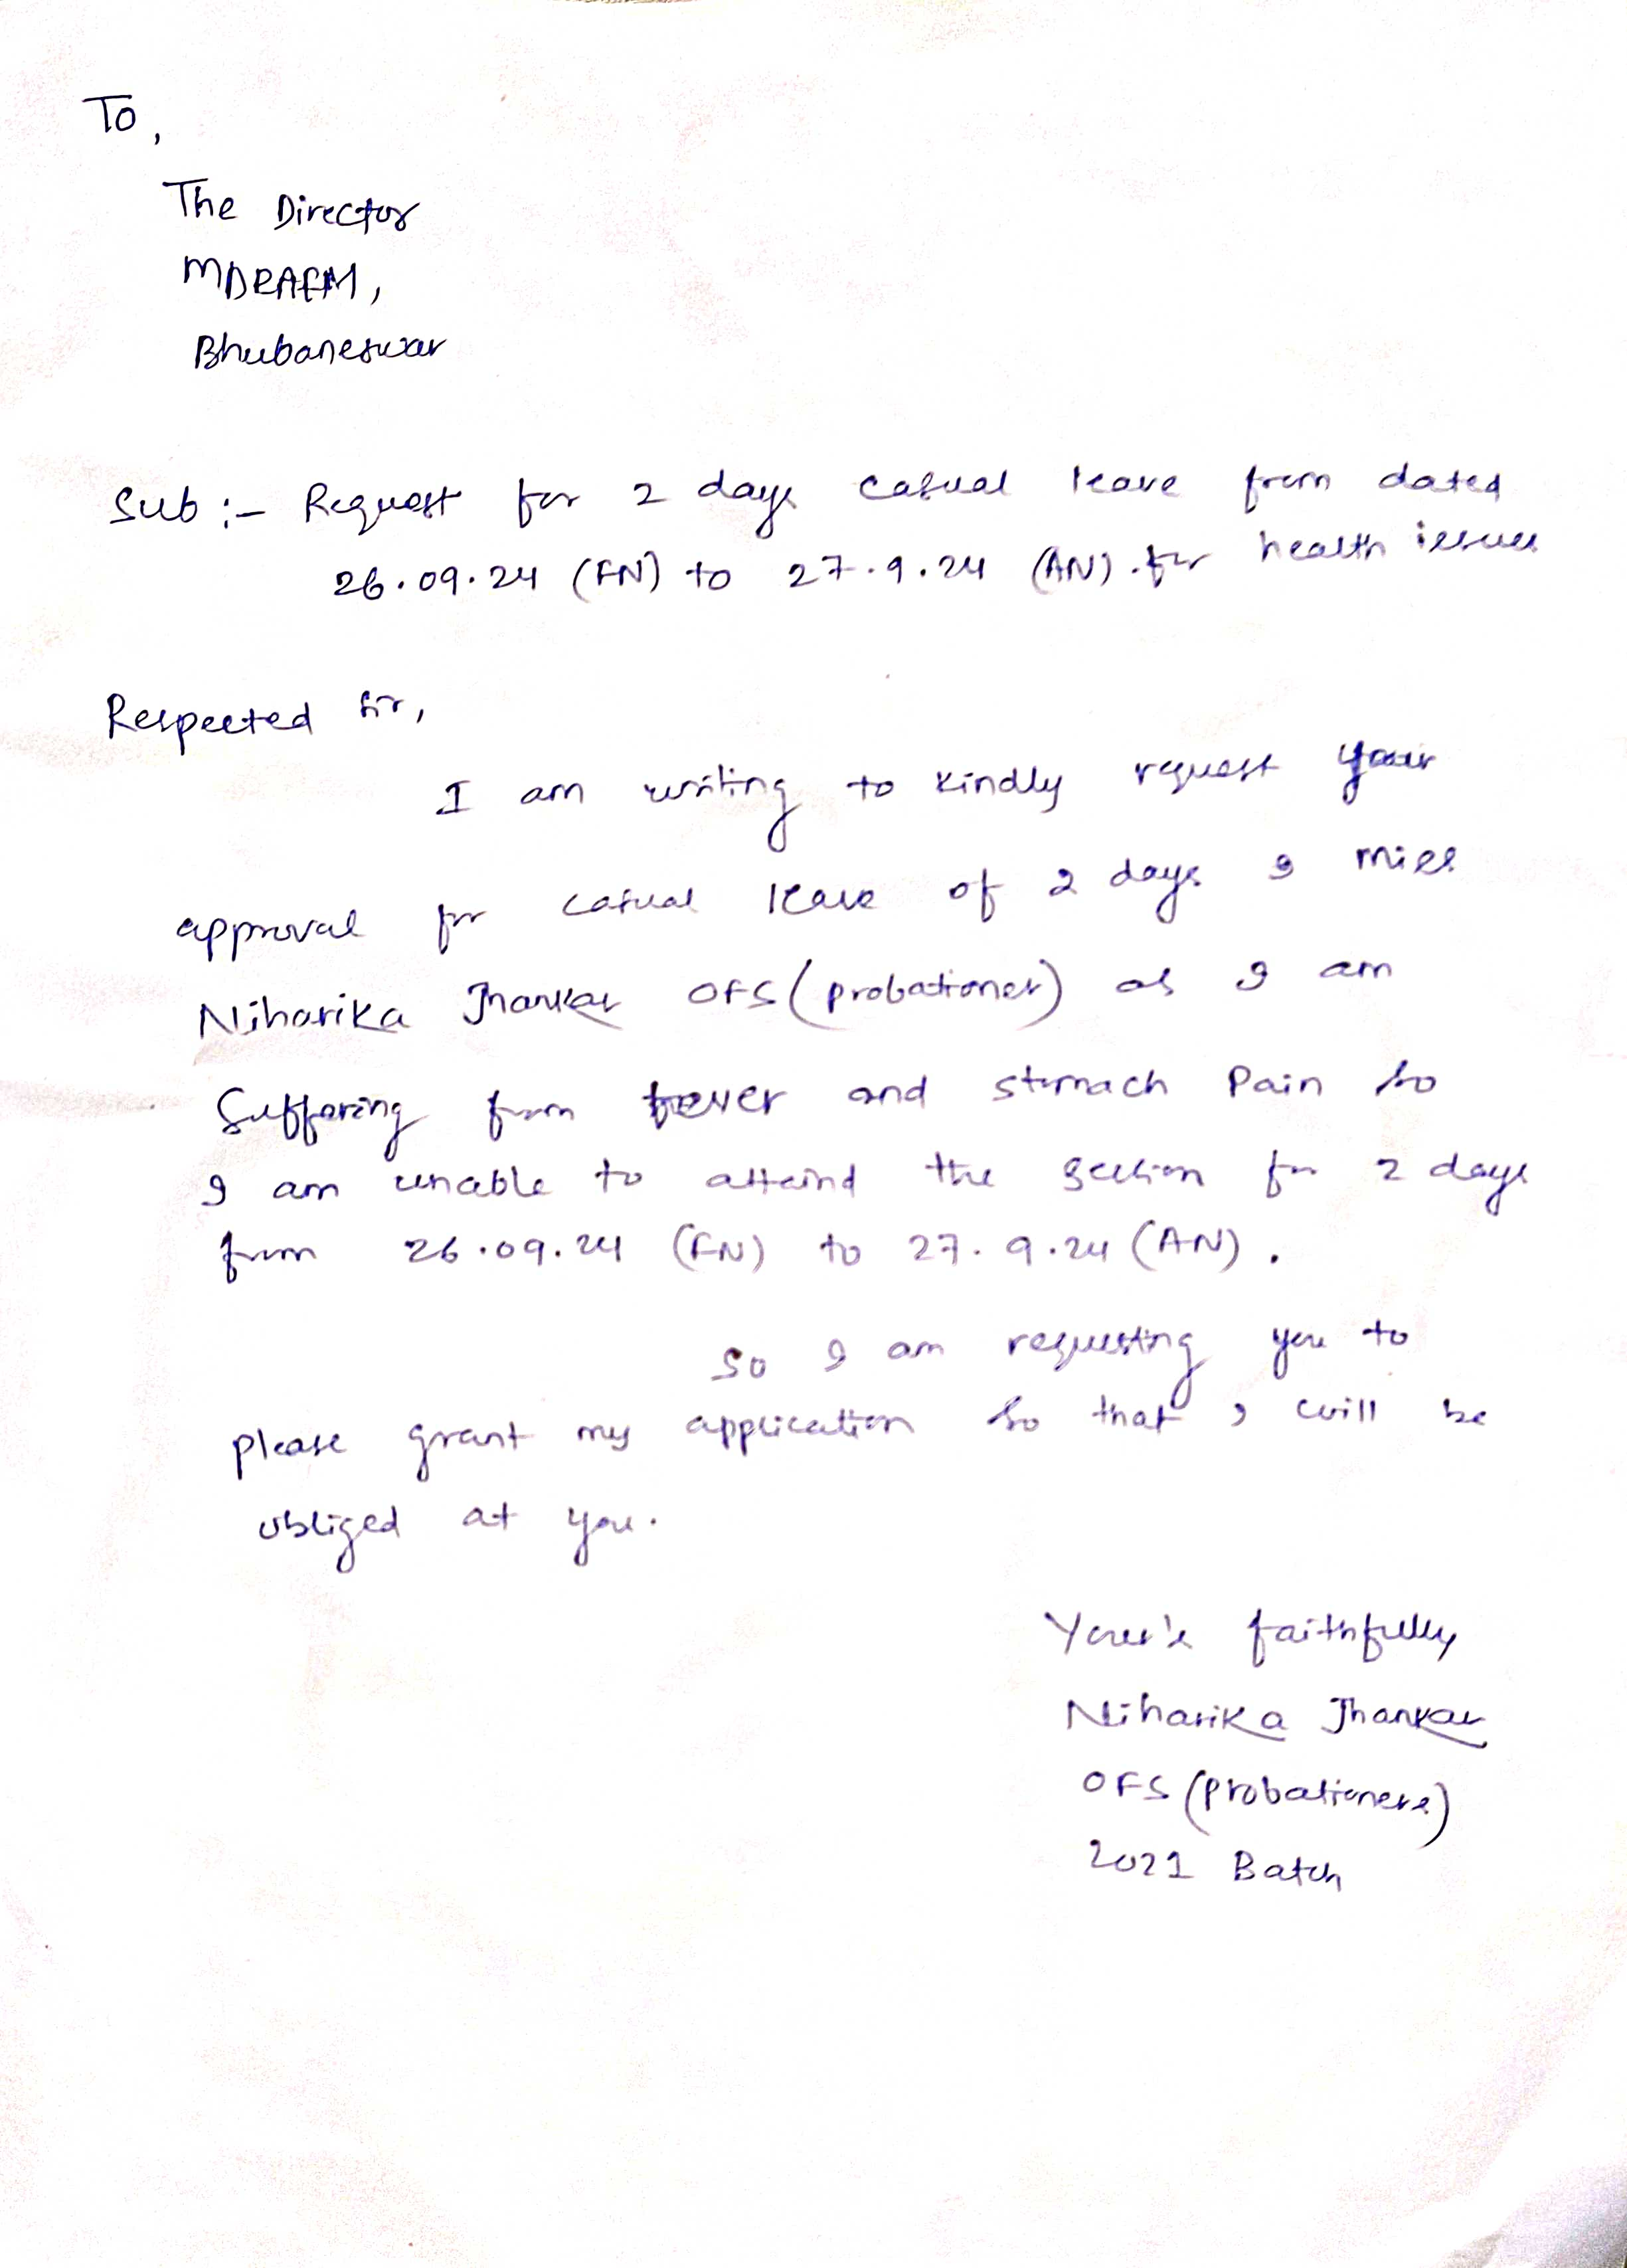 To,
The Director
MDRAFM,
Bhubaneswar
Sub :- Request for 2 days casual leave from dated
26.09.24 (FN) to 27.9.24 (AN). for health issues
Respected Sir,
I am writing to kindly request your
approval for casual leave of 2 days I miss
Niharika Jhankar OFS (probationer) as I am
Suffering from fever and stomach Pain so
I am unable to attaind the section for 2 days
from 26.09.24 (FN) to 27.9.24 (AN).
So I am requesting you to
please grant my application so that I will be
obliged at you.
Your's faithfully
Niharika Jhankar
OFS (Probationers)
2021 Batch